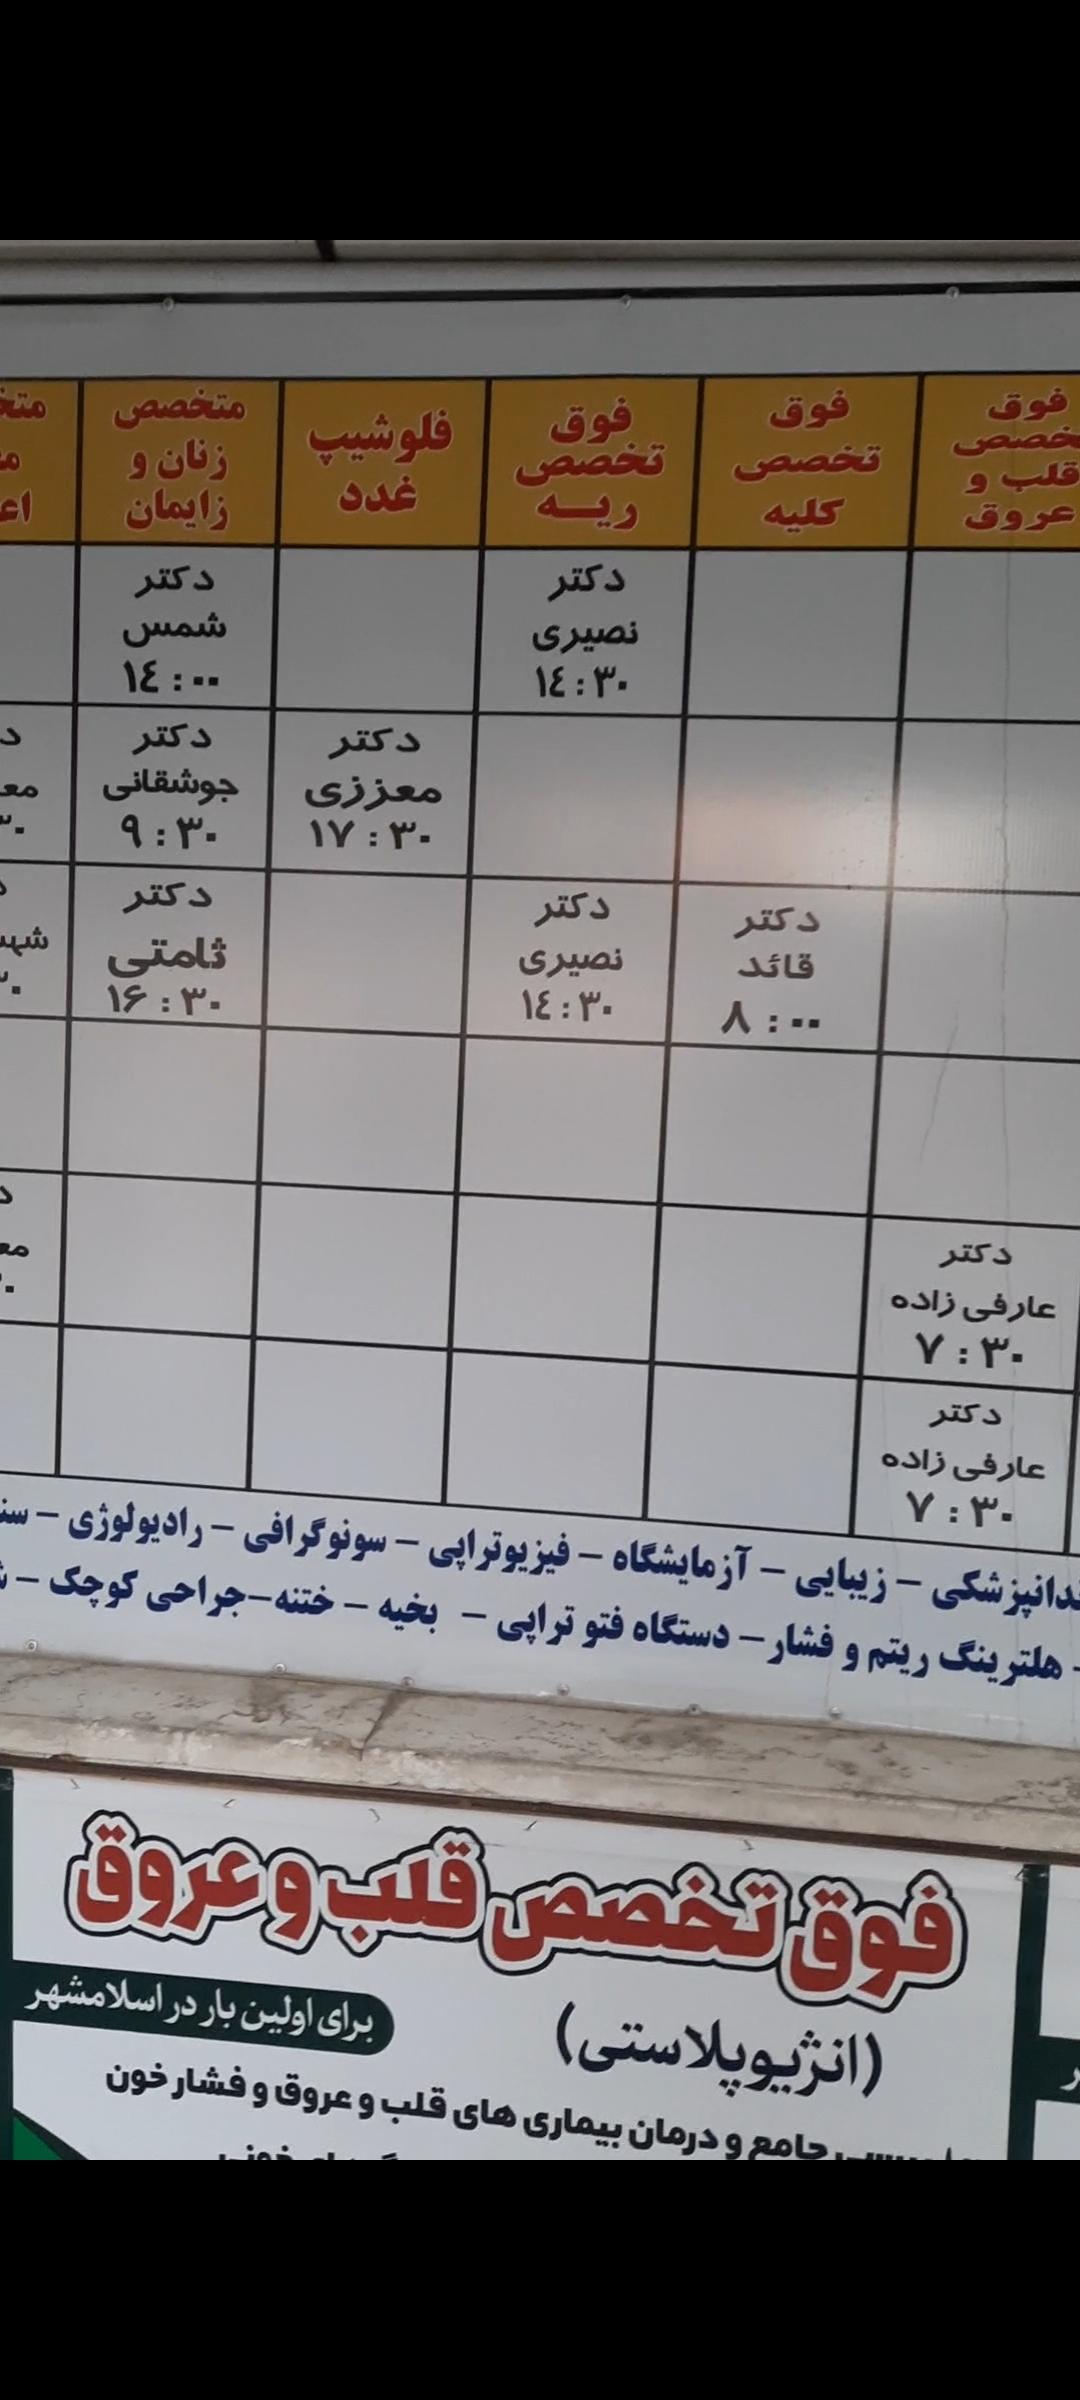 فوق تخصص قلب و عروق
فوق تخصص کلیه
فوق تخصص ریه
فلوشیپ غدد
متخصص زنان و زایمان
دکتر نصیری ۱۴:۳۰
دکتر شمس ۱۴:۰۰
دکتر معززی ۱۷:۳۰
دکتر جوشقانی ۹:۳۰
دکتر قائد ۸:۰۰
دکتر نصیری ۱۴:۳۰
دکتر ثامتی ۱۶:۳۰
دکتر عارفی زاده ۷:۳۰
دکتر عارفی زاده ۷:۳۰
– زیبایی – آزمایشگاه – فیزیوتراپی – سونوگرافی – رادیولوژی –
- هلترینگ ریتم و فشار – دستگاه فتو تراپی – بخیه – ختنه – جراحی کوچک –
فوق تخصص قلب و عروق
(انژیوپلاستی)
برای اولین بار در اسلامشهر
جامع و درمان بیماری های قلب و عروق و فشار خون